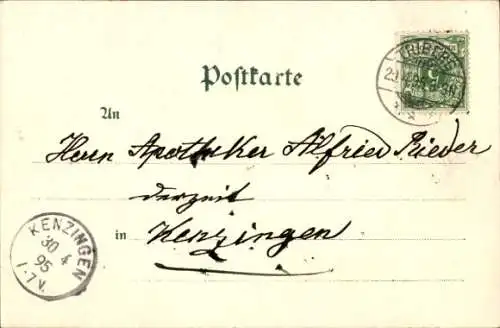 TRIBERG
5
Postkarte
An
Herrn Apotheker Alfried Rieder
derzeit
in Kenzingen
KENZINGEN
30 4
95
1-7V.